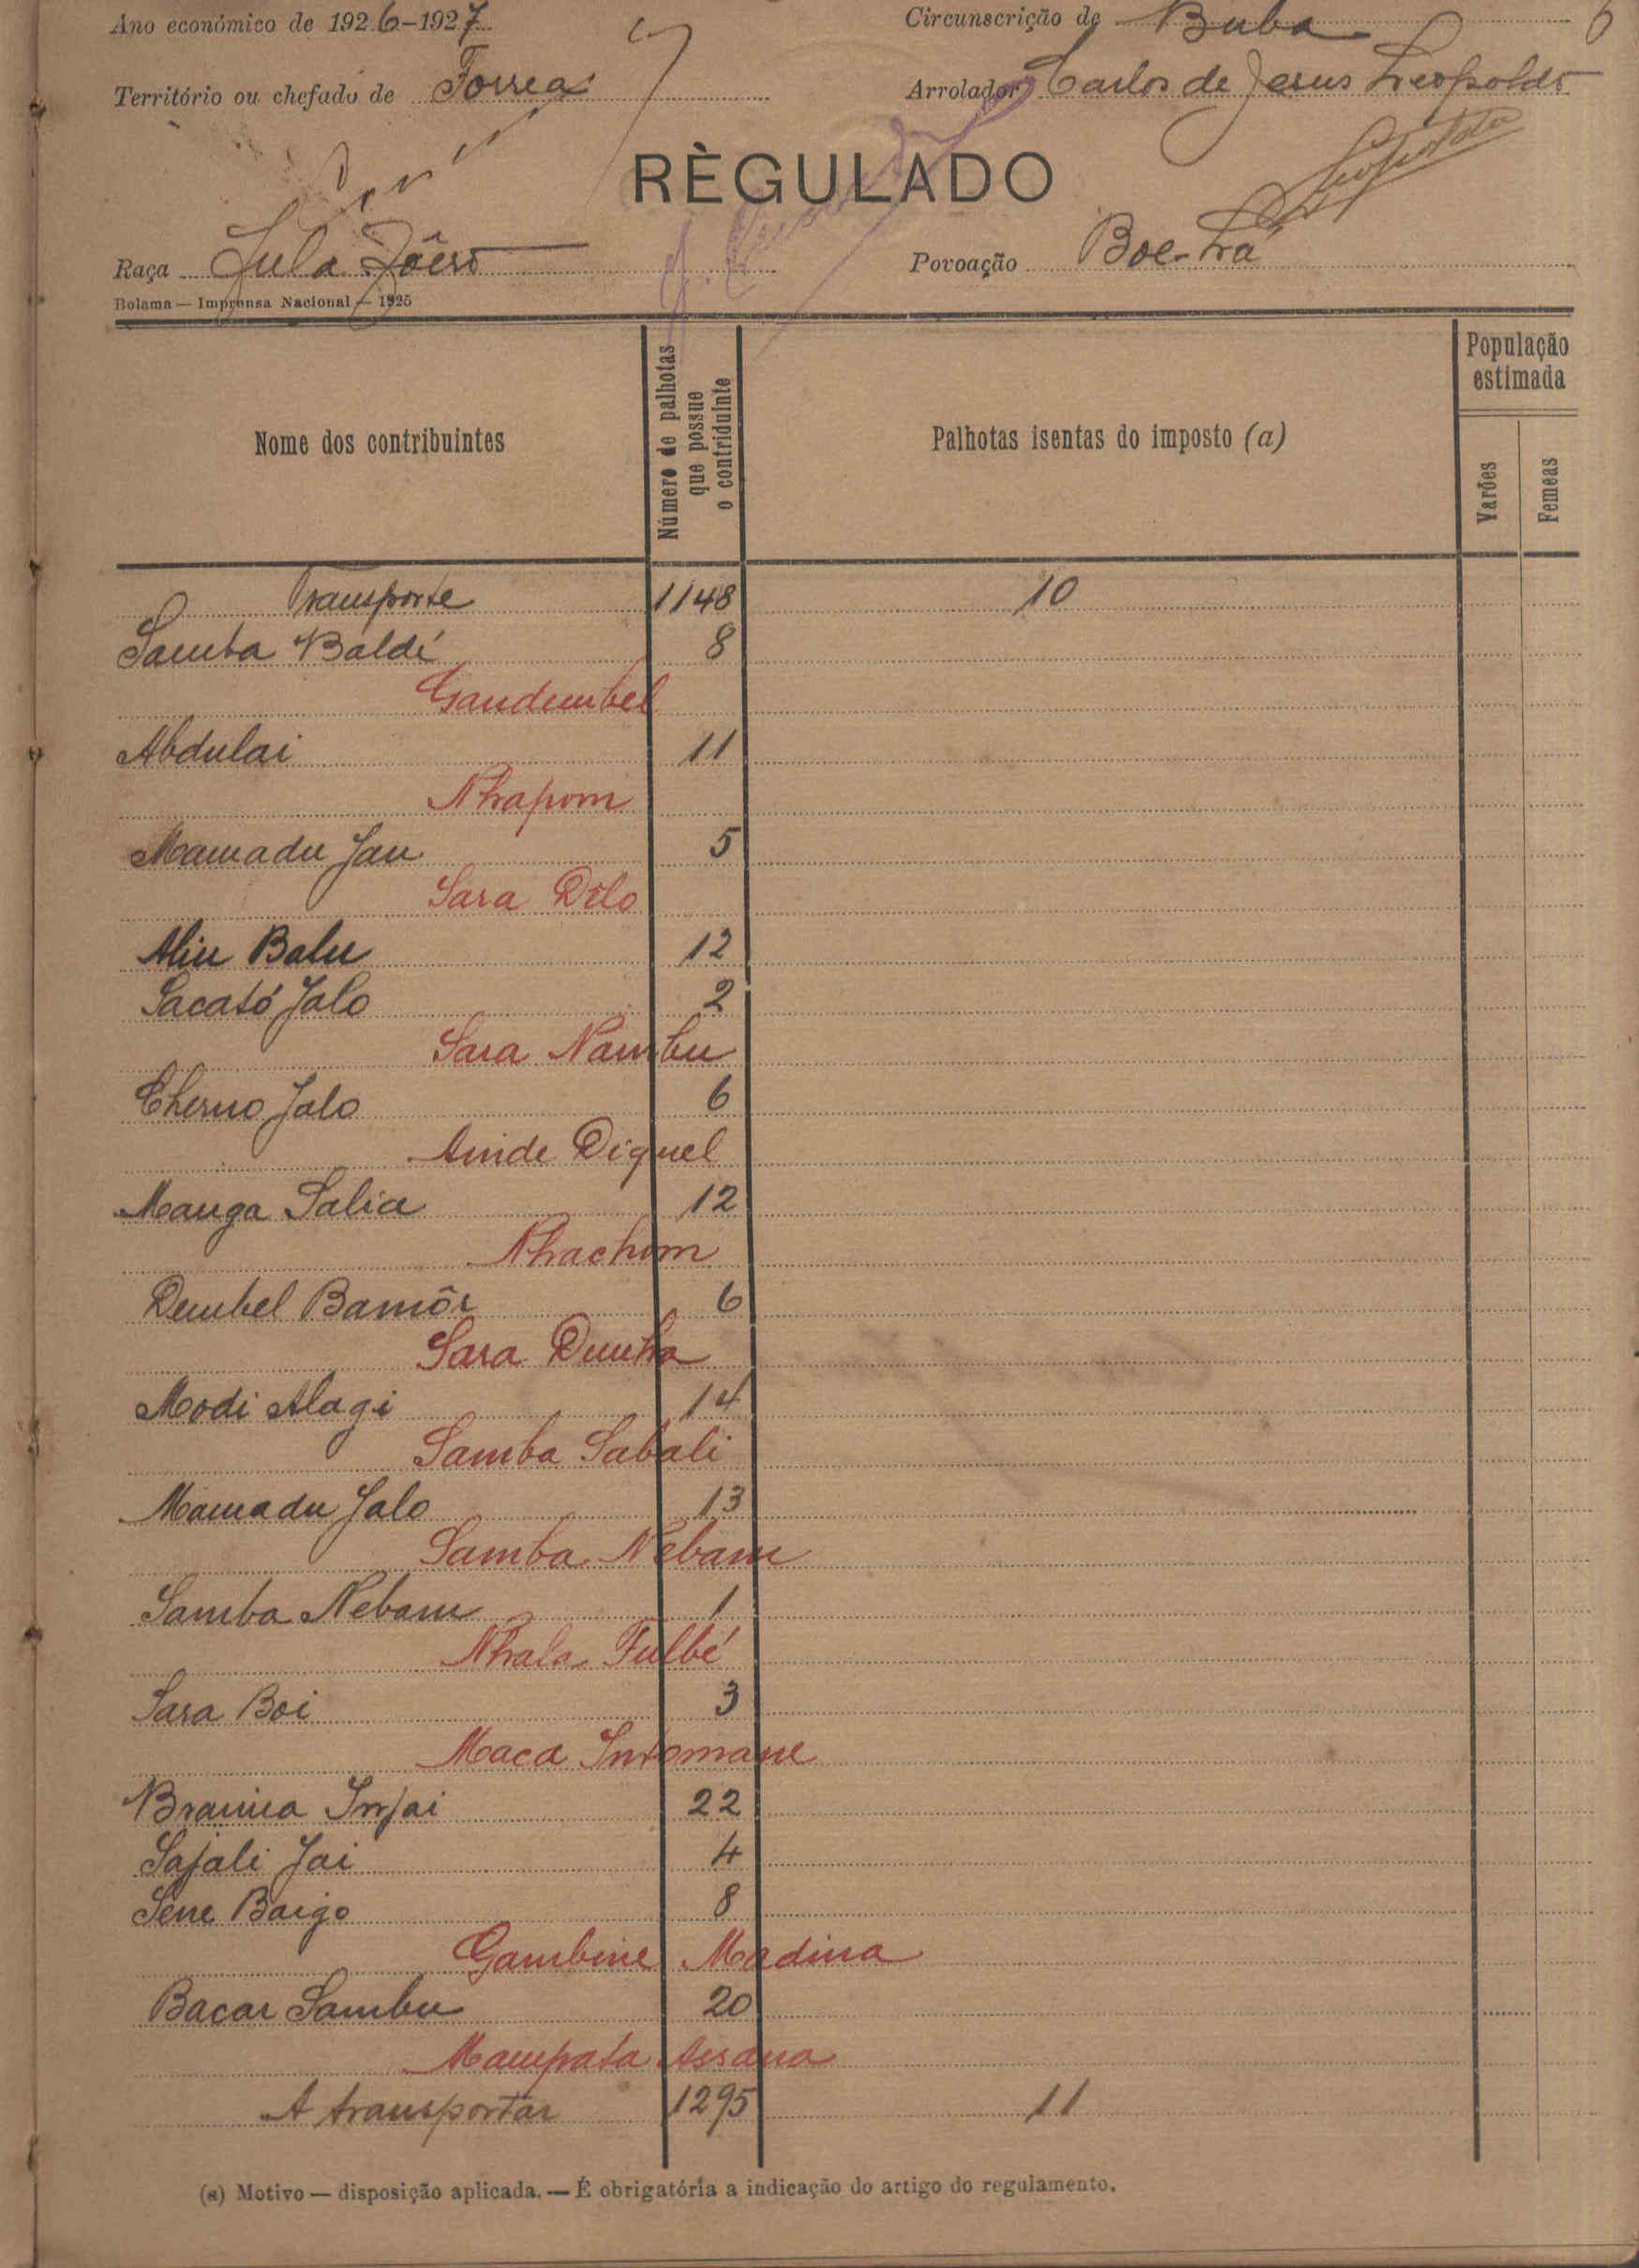 Ano económico de 1926-1927
Circunscrição de Buba
6
Território ou chefado de Forreá
Arrolador Carlos de Jesus Leopoldo
RÈGULADO
Leopoldo
Raça Fula Fôrro
Povoação Boe-Lra
Bolama — Imprensa Nacional — 1925
Nome dos contribuintes
Número de palhotas que possue o contriduinte
Palhotas isentas do imposto (a)
População estimada
Varões
Femeas
Transporte 1148 10
Samba Baldé 8
Gandembel
Abdulai 11
Nhapom
Mamadu Jau 5
Sara Dilo
Aliu Balu 12
Sacató Jalo 2
Sara Nambu
Cherno Jalo 6
Sinde Diquel
Manga Salia 12
Nhachom
Dembel Bamôr 6
Sara Dumba
Modi Alagi 14
Samba Sabali
Mamadu Jalo 13
Samba Nebam
Samba Nebam 1
Nhala Fulbé
Sara Boi 3
Maca Intomane
Braima Injai 22
Sajali Jai 4
Sene Baigo 8
Gambine Madina
Bacar Sambu 20
Mampata Assana
A transportar 1295 11
(a) Motivo — disposição aplicada. — É obrigatória a indicação do artigo do regulamento.